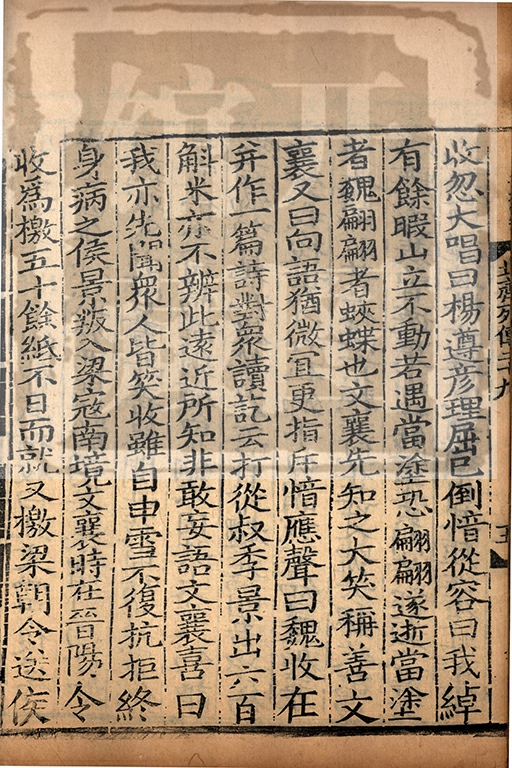 收忽大唱曰楊遵彥理屈已倒愔從容曰我綽
有餘暇山立不動若遇當塗恐翩翩遂逝當塗
者魏翩翩者蛺蝶也文襄先知之大笑稱善文
襄又曰向語猶微宜更指斥愔應聲曰魏收在
并作一篇詩對衆讀訖云打從叔季景出六百
斛米亦不辨此遠近所知非敢妄語文襄喜曰
我亦先聞衆人皆笑收雖自申雪不復抗拒終
身病之侯景叛入梁寇南境文襄時在晉陽令
收爲檄五十餘紙不日而就又檄梁朝令送侯